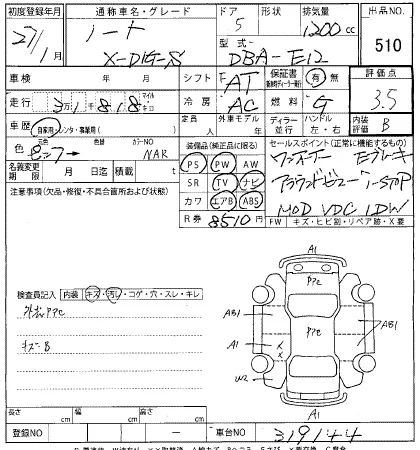 初度登録年月 27/1月
通称車名・グレード ノート X-DIG-S
ドア 5 形状
排気量 1200cc
型式 DBA-E12
出品NO. 510
車検 年 月
シフト F AT
保証書 有 無
評価点 3.5
走行 3万1千818 マイル キロ
冷房 AC
燃料 G
内装評価 B
車歴 自家用 レンタ・事業用( )
定員 人
外車モデル 年
ディーラー 並行
ハンドル 左・右
元色 ピンク → 色替
カラーNO NAR
装備品(純正品に限る)
PS PW AW
SR TV ナビ
カワ エアB ABS
R券 8510円
セールスポイント(正常に機能するもの)
ワンオーナー Eブレーキ
アラウンドビュー i-STOP
MOD VDC LDW
名義変更期限 月 日迄
積載 t
注意事項(欠品・修復・不具合箇所および状態)
FW キズ・ヒビ割・リペア跡・X要
検査員記入 内装 キズ・汚れ・コゲ・穴・スレ・キレ
外ボPアセ
キズ-B
A1
Pアセ
AB1
AB1
Pアセ
A1
W2
A1
長さ cm 幅 cm 高さ cm
登録NO ー
車台NO 319144